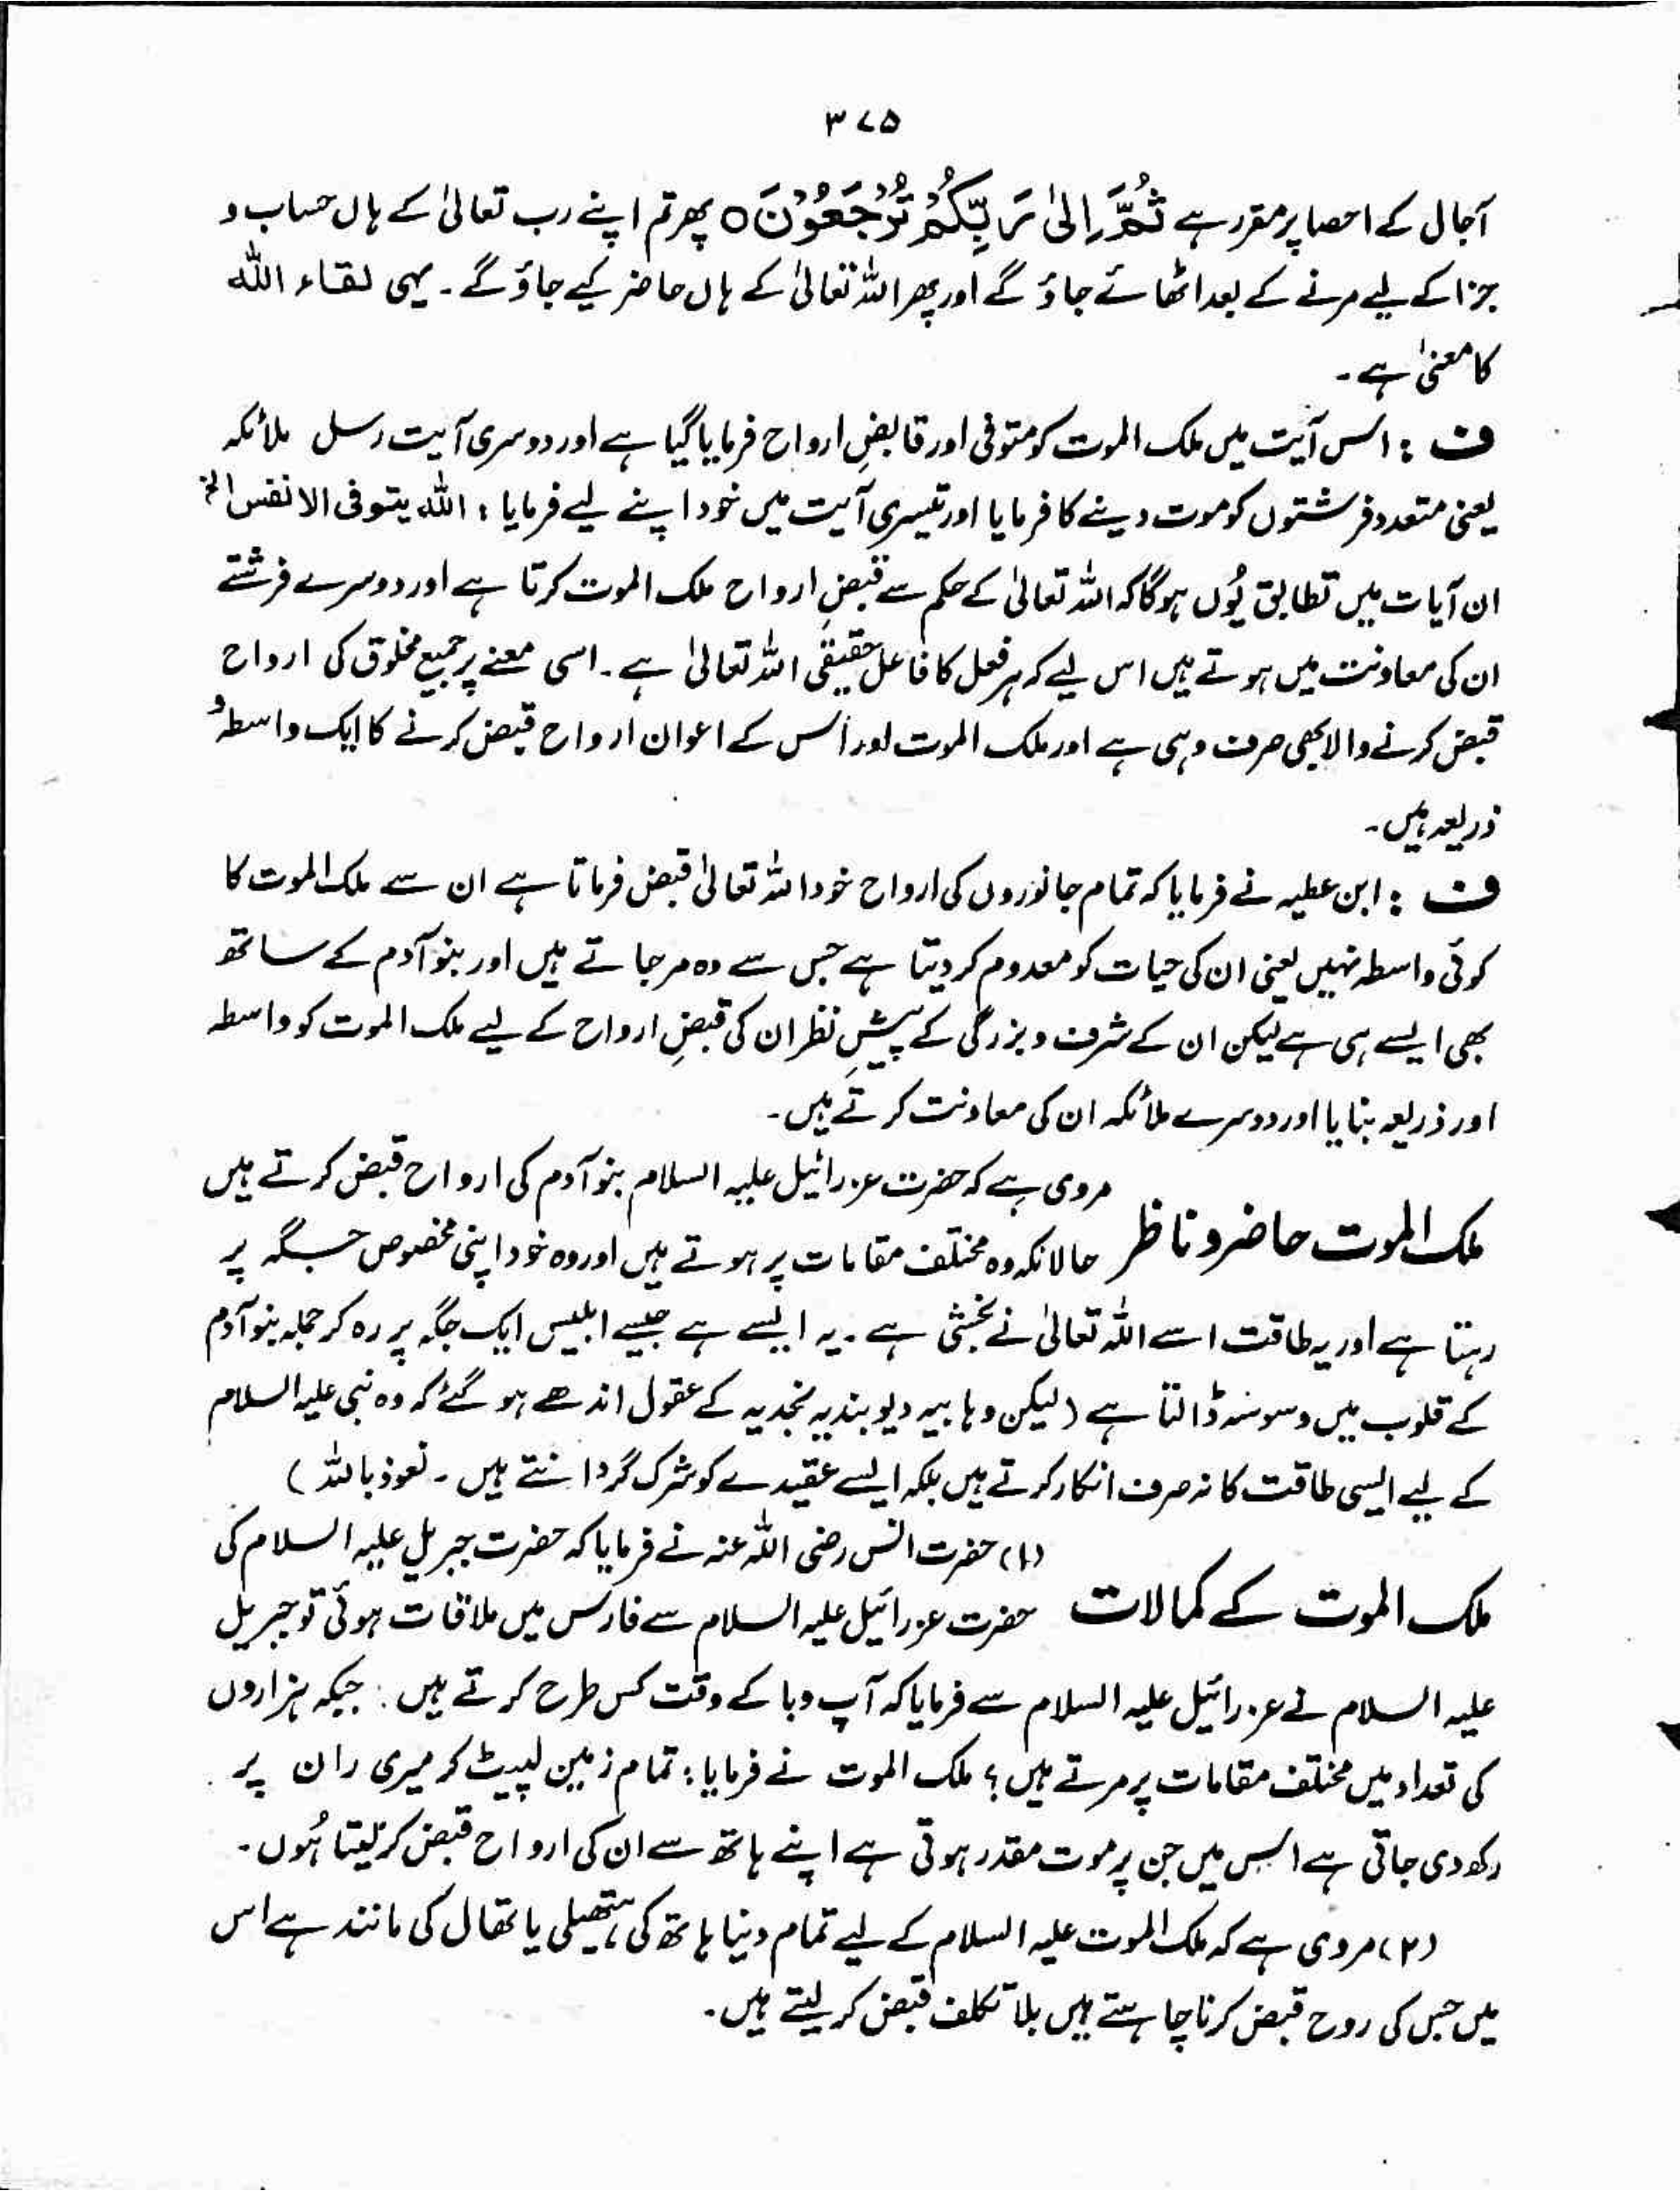 ۳۷۵
آجال کے احصا پر مقرر ہے ثُمَّ اِلٰی رَبِّکُمْ تُرْجَعُوْنَ○ پھر تم اپنے رب تعالیٰ کے ہاں حساب و
جزا کے لیے مرنے کے بعد اٹھائے جاؤ گے اور پھر اللہ تعالیٰ کے ہاں حاضر کیے جاؤ گے۔ یہی لقاء اللہ
کا معنیٰ ہے۔
ف : اس آیت میں ملک الموت کو متوفی اور قابضِ ارواح فرمایا گیا ہے اور دوسری آیت رسل ملائکہ
یعنی متعدد فرشتوں کو موت دینے کا فرمایا اور تیسری آیت میں خود اپنے لیے فرمایا : اللہ یتوفی الانفس الخ
ان آیات میں تطابق یُوں ہوگا کہ اللہ تعالیٰ کے حکم سے قبضِ ارواح ملک الموت کرتا ہے اور دوسرے فرشتے
ان کی معاونت میں ہوتے ہیں اس لیے کہ ہر فعل کا فاعل حقیقی اللہ تعالیٰ ہے۔ اسی معنے پر جمیع مخلوق کی ارواح
قبض کرنے والا بھی صرف وہی ہے اور ملک الموت اور اس کے اعوان ارواح قبض کرنے کا ایک واسطہ و
ذریعہ ہیں۔
ف : ابن عطیہ نے فرمایا کہ تمام جانوروں کی ارواح خود اللہ تعالیٰ قبض فرماتا ہے ان سے ملک الموت کا
کوئی واسطہ نہیں یعنی ان کی حیات کو معدوم کر دیتا ہے جس سے وہ مر جاتے ہیں اور بنو آدم کے ساتھ
بھی ایسے ہی ہے لیکن ان کے شرف و بزرگی کے پیشِ نظر ان کی قبضِ ارواح کے لیے ملک الموت کو واسطہ
اور ذریعہ بنایا اور دوسرے ملائکہ ان کی معاونت کرتے ہیں۔
مروی ہے کہ حضرت عزرائیل علیہ السلام بنو آدم کی ارواح قبض کرتے ہیں
ملک الموت حاضر و ناظر
حالانکہ وہ مختلف مقامات پر ہوتے ہیں اور وہ خود اپنی مخصوص جگہ پر
رہتا ہے اور یہ طاقت اسے اللہ تعالیٰ نے بخشی ہے۔ یہ ایسے ہے جیسے ابلیس ایک جگہ پر رہ کر جملہ بنو آدم
کے قلوب میں وسوسہ ڈالتا ہے (لیکن وہابیہ دیوبندیہ نجدیہ کے عقول اندھے ہو گئے کہ وہ نبی علیہ السلام
کے لیے ایسی طاقت کا نہ صرف انکار کرتے ہیں بلکہ ایسے عقیدے کو شرک گردانتے ہیں۔ نعوذ باللہ)
(۱) حضرت انس رضی اللہ عنہ نے فرمایا کہ حضرت جبریل علیہ السلام کی
ملک الموت کے کمالات
حضرت عزرائیل علیہ السلام سے فارس میں ملاقات ہوئی تو جبریل
علیہ السلام نے عزرائیل علیہ السلام سے فرمایا کہ آپ وبا کے وقت کس طرح کرتے ہیں جبکہ ہزاروں
کی تعداد میں مختلف مقامات پر مرتے ہیں ؟ ملک الموت نے فرمایا : تمام زمین لپیٹ کر میری ران پر
رکھ دی جاتی ہے اس میں جن پر موت مقدر ہوتی ہے اپنے ہاتھ سے ان کی ارواح قبض کر لیتا ہُوں۔
(۲) مروی ہے کہ ملک الموت علیہ السلام کے لیے تمام دنیا ہاتھ کی ہتھیلی یا تھال کی مانند ہے اس
میں جس کی روح قبض کرنا چاہتے ہیں بلا تکلف قبض کر لیتے ہیں۔